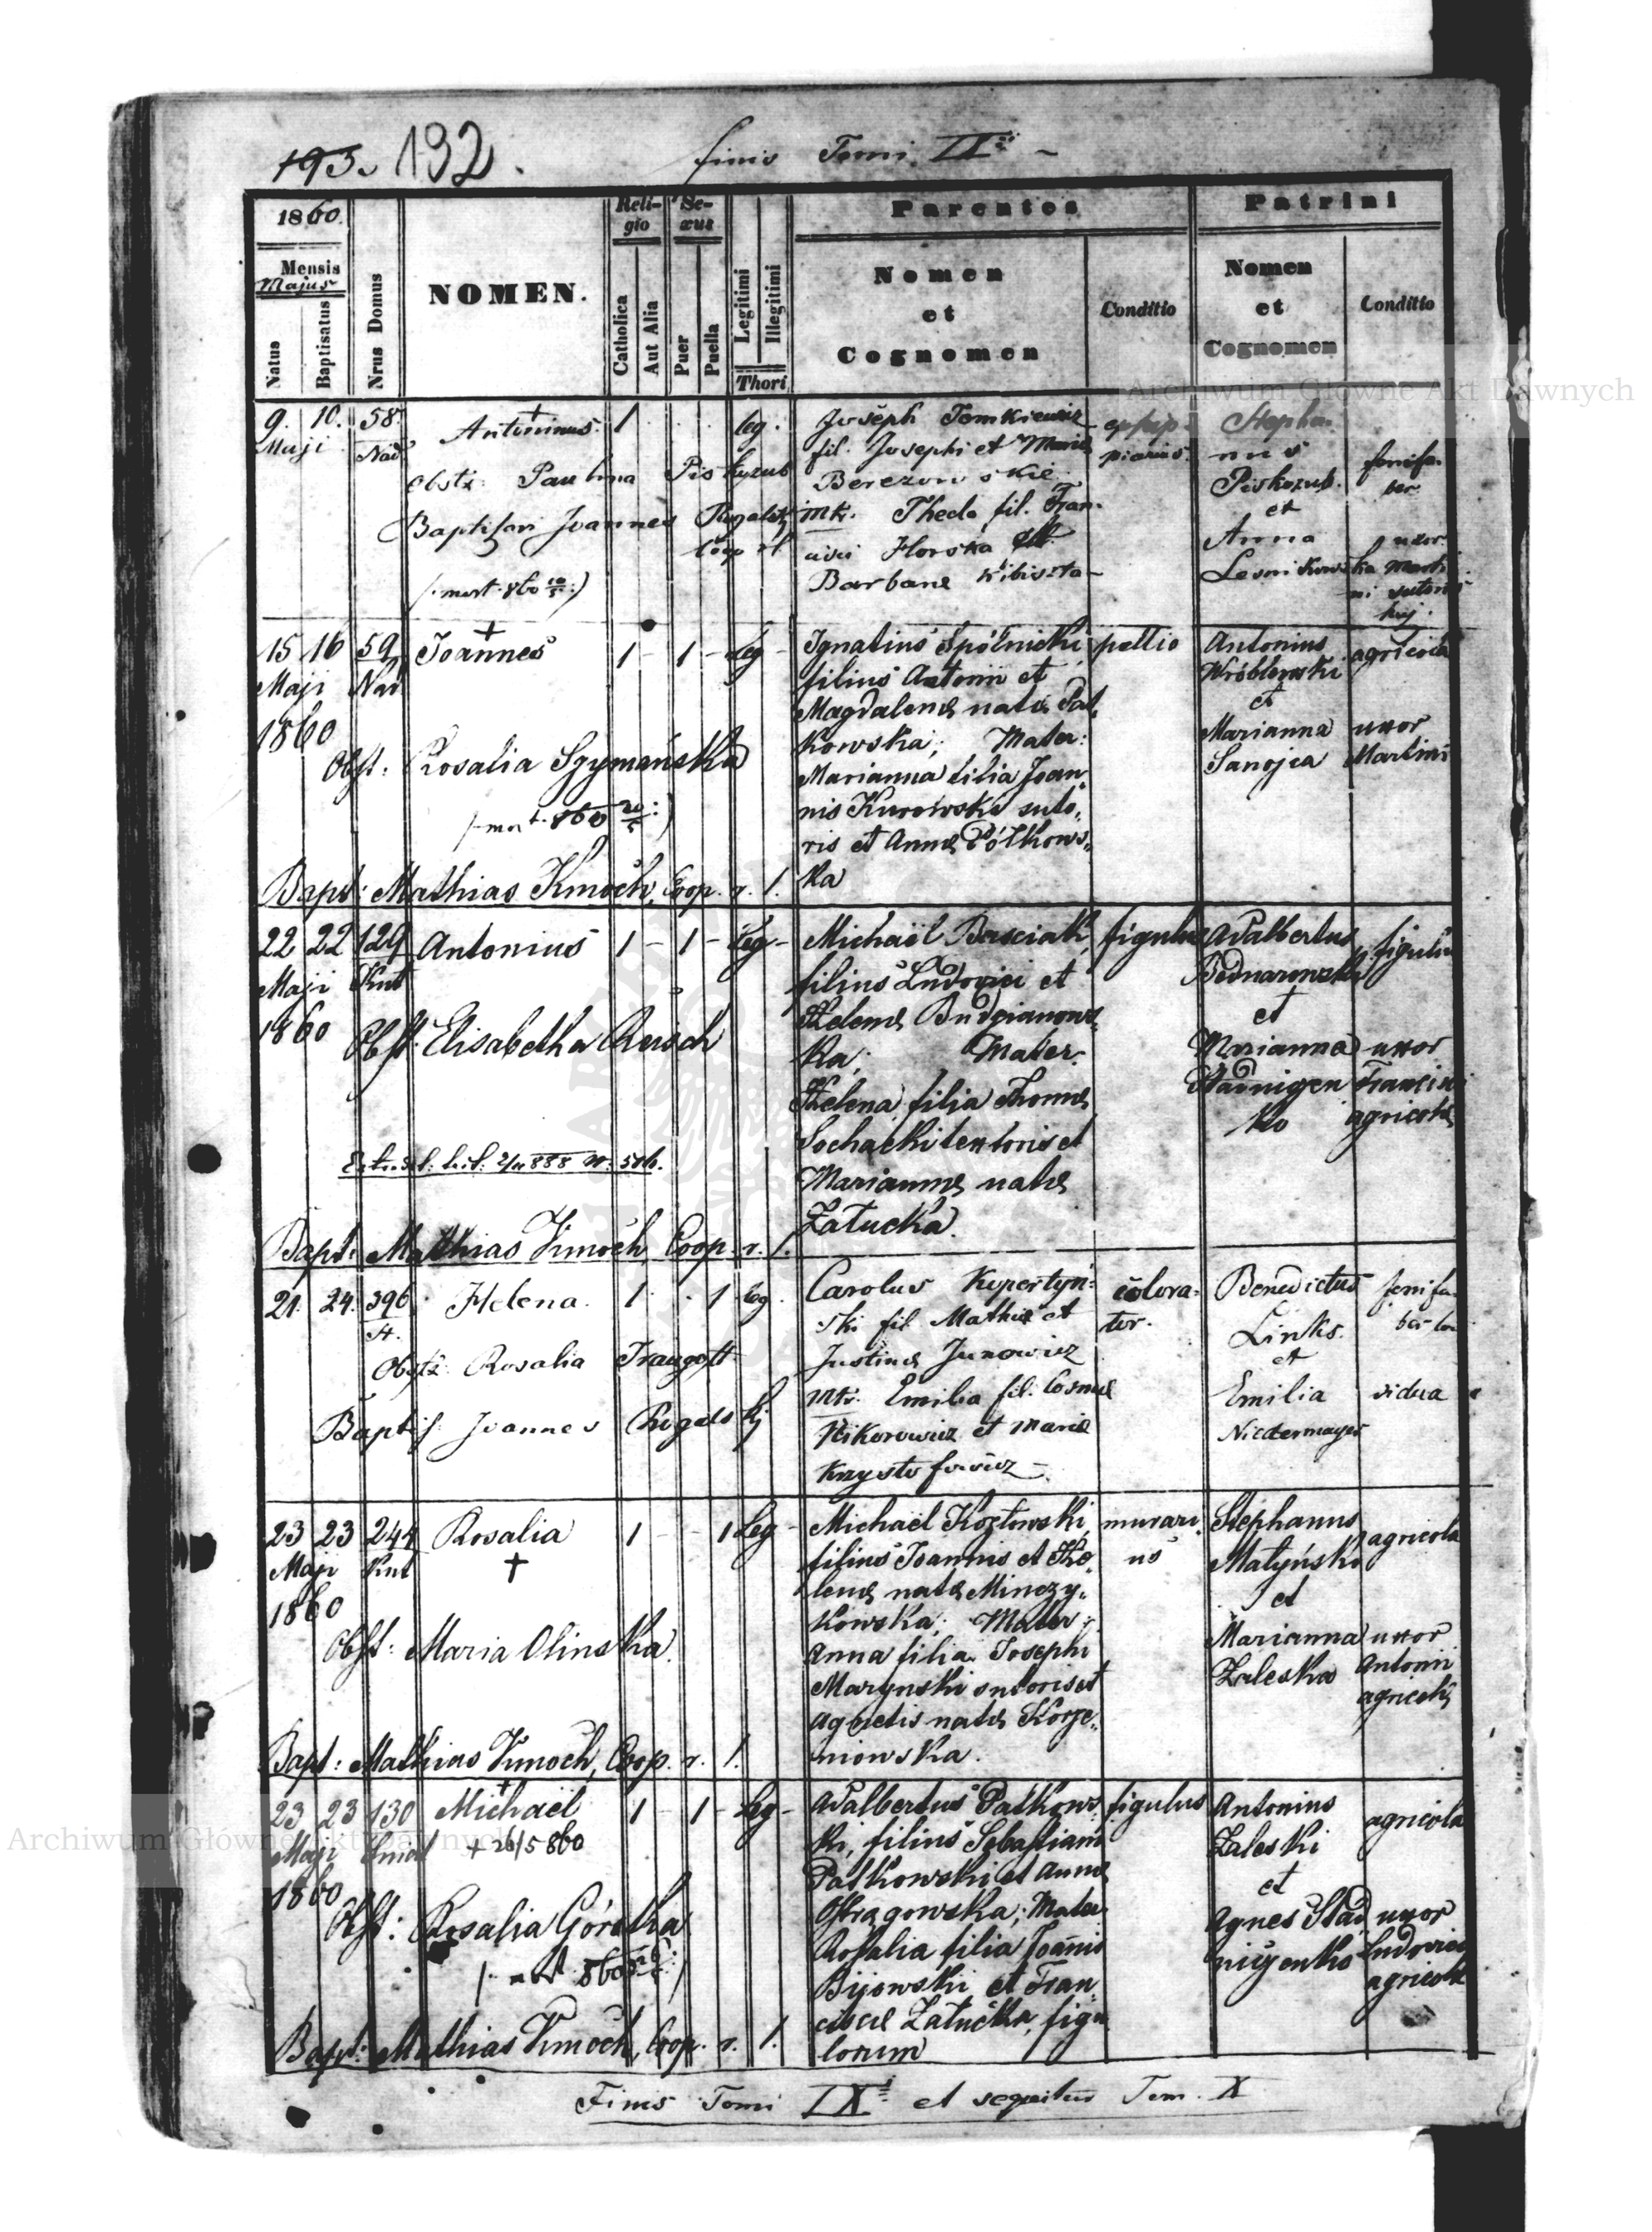 193. 192.
finis Tomi IX
1860.
Mensis
Majus
Natus
Baptisatus
Nrus Domus
NOMEN.
Religio
Catholica
Aut Alia
Sexus
Puer
Puella
Legitimi
Illegitimi
Thori
Parentes
Nomen
et
Cognomen
Conditio
Patrini
Nomen
et
Cognomen
Conditio
9. 10. 58.
Maji Nad
Antoninus. 1 leg.
Obstx: Paulina Piskozub
Baptisavi Joannes
Coop
(: mort. 860 10/5 :)
Joseph Tomkiewicz
fil. Josephi et Mariæ
Berezowskie
Mtr. Thecla fil. Fran-
cisci Horska et
Barbaræ
ephip-
piarius.
Stepha-
nus
Piskozub.
et
Anna
Lesnikowska
fenifa-
ber
uxor
Marti-
ni sutoris
huj.
15 16 59
Maji Nad
1860
Joannes 1 - 1 - Leg -
Obst: Rosalia Szymańska
(: mort. 860 20/5 :)
Bapt: Mathias Kmoch, Coop. r. l.
Ignatius Spólnicki
filius Antonii et
Magdalenæ natæ Pat-
kowska; Mater:
Marianna filia Joan-
nis Kurowski suto-
ris et Annæ Półkows-
ka
pellio
Antonius
Wróblewski
et
Marianna
Sanojca
agricola
uxor
Martini
22 22 129
Maji Knt
1860
Antonius 1 - 1 - Leg -
Obst: Elisabetha Reisch
Bapt: Mathias Kmoch, Coop. r. l.
Michaël Basciak,
filius Ludovici et
Helenæ Budzianows-
ka; Mater:
Helena filia Thomæ
Sochacki textoris et
Mariannæ natæ
Załucka.
figulus
Adalbertus
Bednarowski
et
Marianna
Stadnigen
ko
figulus
uxor
Francisci
agricolæ
21. 24. 396
St.
Helena. 1. 1 leg.
Obstx: Rosalia Traugott
Baptis. Joannes Rogalski
Carolus Kopertyń-
ski fil. Mathiæ et
Justinæ Junowicz
Mtr. Emilia fil. Cosmæ
Nikorowicz et Mariæ
Krzysztofowicz
colora-
tor.
Benedictus
Links.
et
Emilia
Niedermayer
fenifa-
ber
vidua
23 23 244
Maji Knt
1860
Rosalia 1 - - 1 Leg -
Obst: Maria Olinska
Bapt: Mathias Kmoch, Coop. r. l.
Michaël Kozłowski,
filius Joannis et He-
lenæ natæ Minczy-
kowska; Mater:
Anna filia Josephi
Marynski sutoris et
Agnetis natæ Korze-
niowska.
murari-
us
Stephanus
Matyński
et
Marianna
Zaleska
agricola
uxor
Antonii
agricolæ
23 23 130
Maji
1860
Michaël 1 - 1 - Leg -
+ 26/5 860
Obst: Rosalia Górecka
Bapt: Mathias Kmoch, Coop. r. l.
Adalbertus Patkows-
ki, filius Sebastiani
Patkowski et Annæ
Mater
Rosalia filia Joannis
Bijowski et Fran-
ciscæ Załucka, figu-
lorum
figulus
Antonius
Zaleski
et
Agnes Stad
nigenko
agricola
uxor
Ludovici
agricolæ
Finis Tomi IX et sequitur Tom. X
Archiwum Główne Akt Dawnych
Archiwum Główne Akt Dawnych